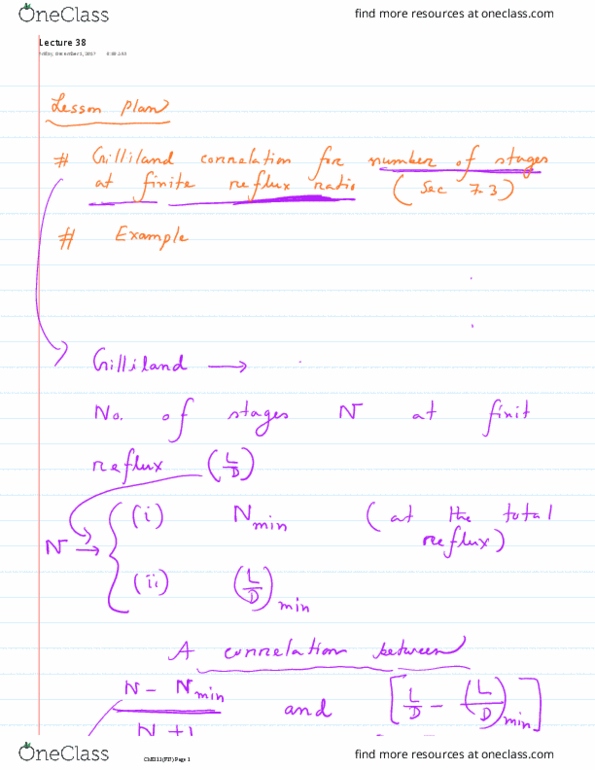 OneClass
find more resources at oneclass.com
Lecture 38
Lesson plan
# Gilliland correlation for number of stages
at finite reflux ratio (Sec 7.3)
# Example
Gilliland →
No. of stages N at finit
reflux (L/D)
N → { (i) Nmin (at the total
reflux)
(ii) (L/D)min
A correlation between
N - Nmin / N+1 and [L/D - (L/D)min]
OneClass
find more resources at oneclass.com